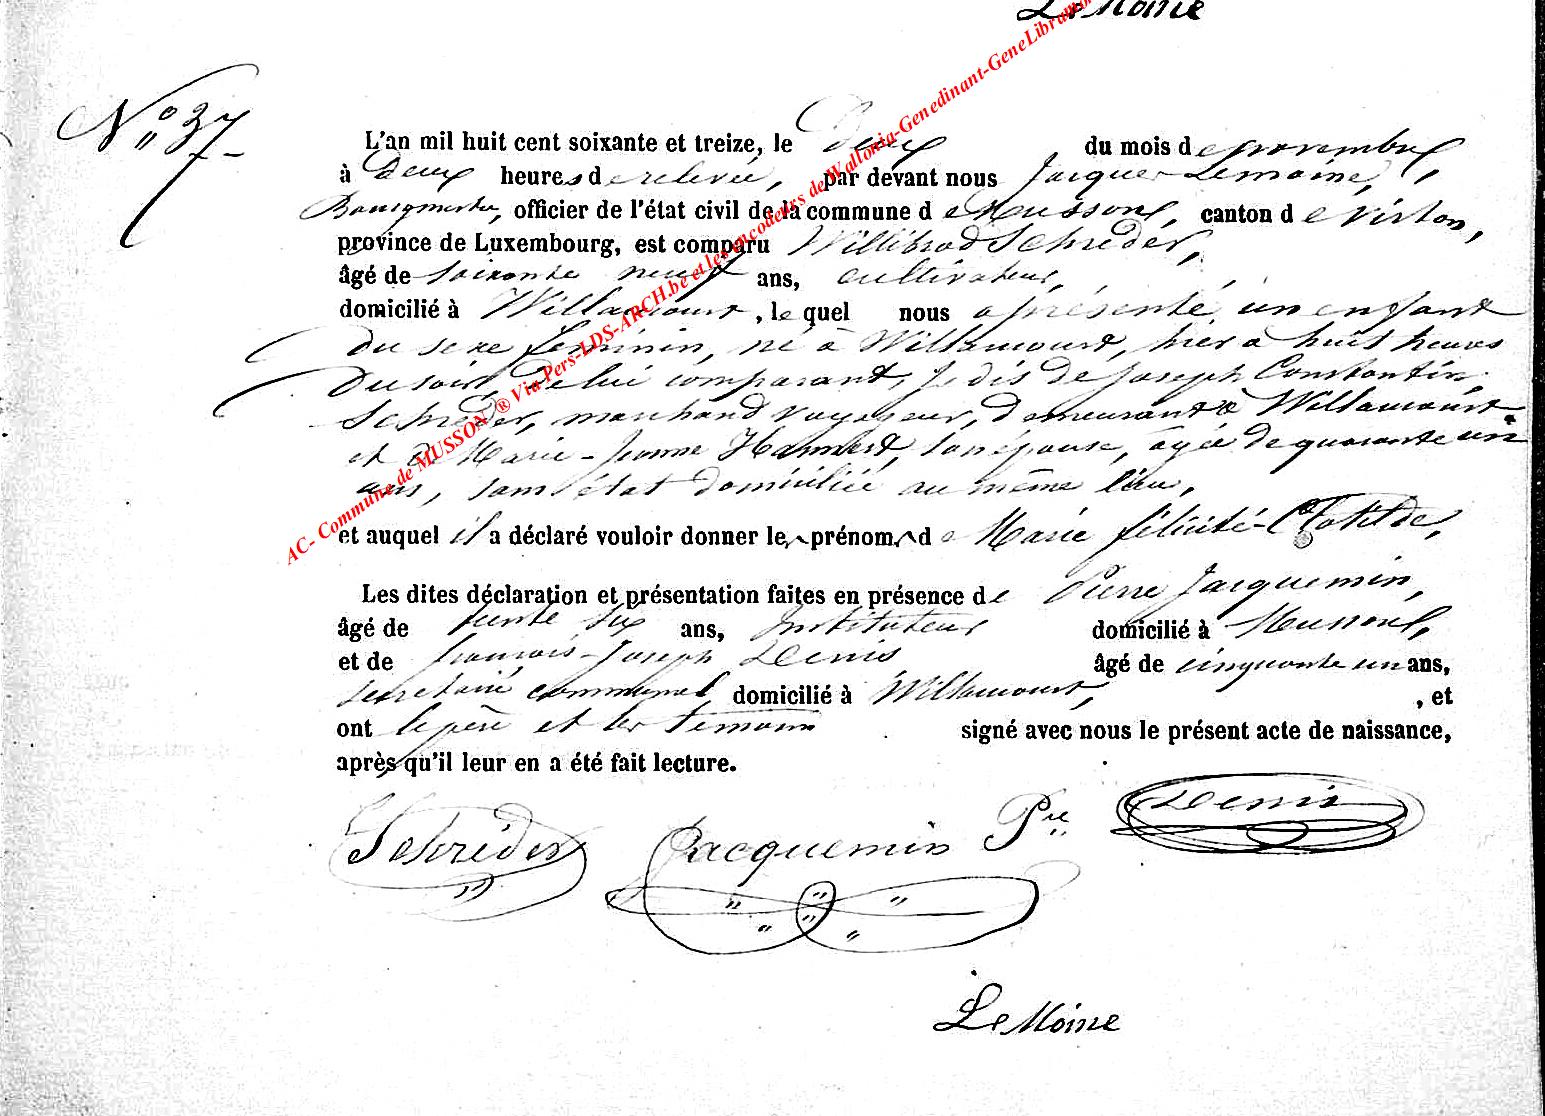 Le Moine
N° 37
L'an mil huit cent soixante et treize, le Deux du mois de novembre,
à Deux heures de relevée, par devant nous Jacques Lemoine,
Bourgmestre, officier de l'état civil de la commune de Musson, canton de Virton,
province de Luxembourg, est comparu Willibrod Schréder,
âgé de soixante neuf ans, cultivateur,
domicilié à Willancourt, lequel nous a présenté un enfant
du sexe féminin, né à Willancourt, hier à huit heures
du soir, de lui comparant, je dis de Joseph Constantin
Schréder, marchand voyageur, demeurant à Willancourt
et de Marie-Jeanne Hannert, son épouse, agée de quarante un
ans, sans état domiciliée au même lieu,
et auquel il a déclaré vouloir donner les prénoms de Marie félicité-Clotilde,
Les dites déclaration et présentation faites en présence de Pierre Jacquemin,
âgé de trente six ans, Instituteur domicilié à Musson,
et de françois-Joseph Denis âgé de cinquante un ans,
secrétaire communal, domicilié à Willancourt, , et
ont le père et les témoins signé avec nous le présent acte de naissance,
après qu'il leur en a été fait lecture.
Schréder Jacquemin Pre Denis
Le Moine
AC- Commune de MUSSON ® Via Pers-LDS-ARCH.be et les encodeurs de Wallonia-Genedinant-GeneLibramon